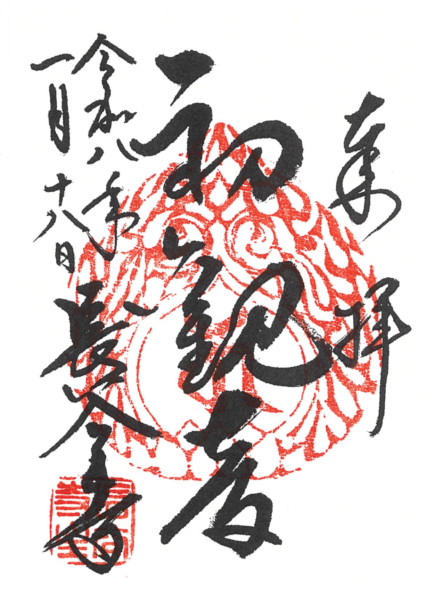 奉拝
初観音
令和八年
一月十八日
長谷寺